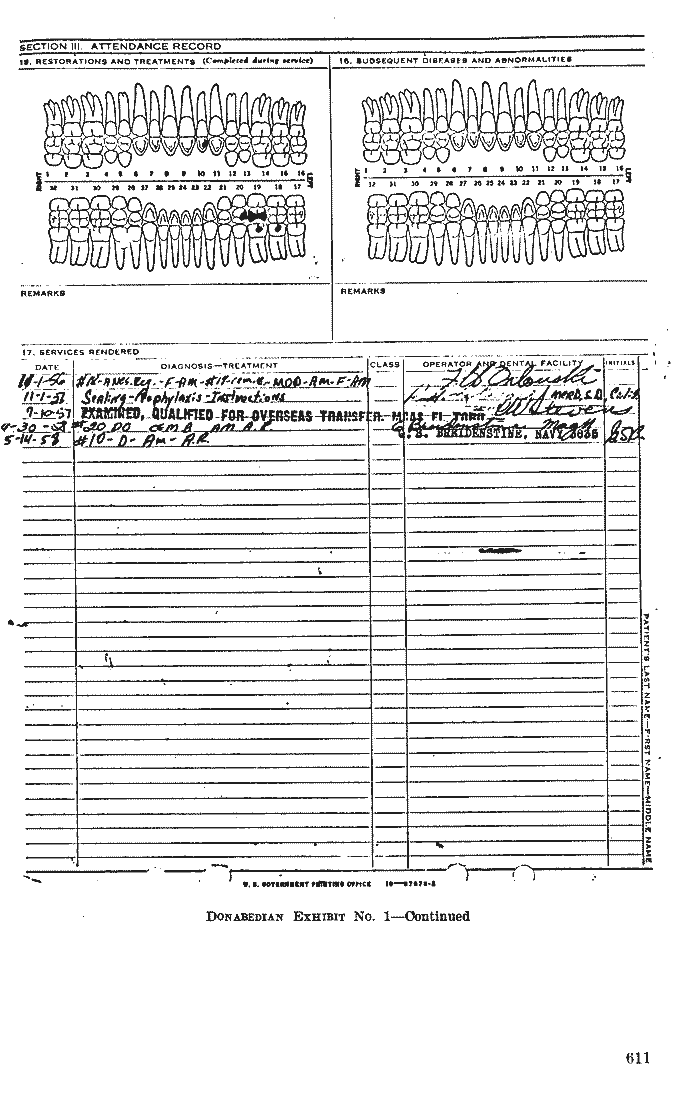 SECTION III. ATTENDANCE RECORD
15. RESTORATIONS AND TREATMENTS (Completed during service)
16. SUBSEQUENT DISEASES AND ABNORMALITIES
RIGHT
1 2 3 4 5 6 7 8 9 10 11 12 13 14 15 16
32 31 30 29 28 27 26 25 24 23 22 21 20 19 18 17
LEFT
RIGHT
1 2 3 4 5 6 7 8 9 10 11 12 13 14 15 16
32 31 30 29 28 27 26 25 24 23 22 21 20 19 18 17
LEFT
REMARKS
REMARKS
17. SERVICES RENDERED
DATE DIAGNOSIS—TREATMENT CLASS OPERATOR AND DENTAL FACILITY INITIALS
-1-56 F-AM- MOD-AM-F-AM
11-1-57 Scaling-Prophylaxis-Instructions MCRD, S.D., Calif.
7-10-57 EXAMINED, QUALIFIED FOR OVERSEAS TRANSFER. MCAS EL TORO
4-30-58 #20 DO AM A.R
5-14-58 #10-D-Am-A.R G. S. BRAIDENSTINE, NAVY 3835
PATIENT'S LAST NAME—FIRST NAME—MIDDLE NAME
U. S. GOVERNMENT PRINTING OFFICE
DONABEDIAN EXHIBIT No. 1—Continued
611